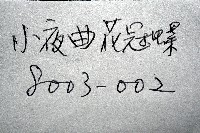 小夜曲花冠蝶
8003-002